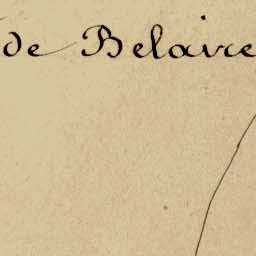 de Belaire